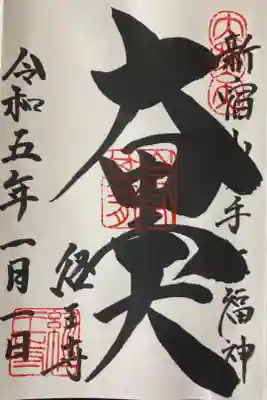 新宿山ノ手七福神
大黒天
経王寺
令和五年一月一日